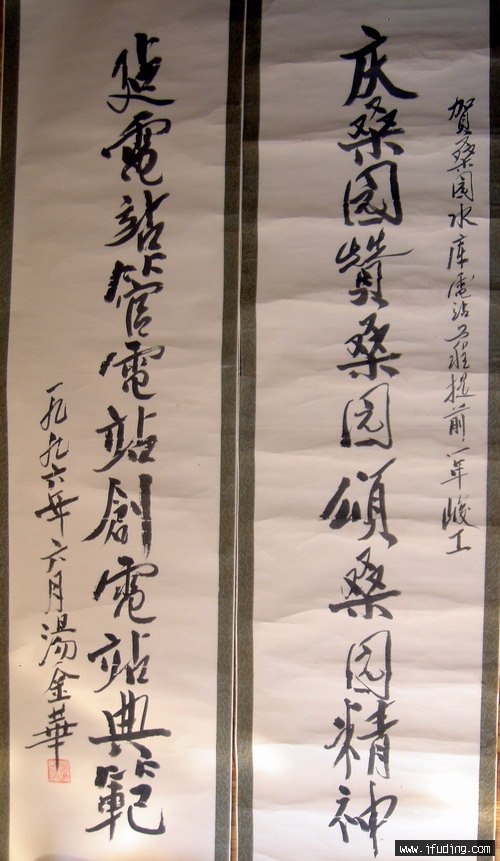 贺桑园水库電站工程提前一年峻工
庆桑园赞桑园頌桑园精神
建電站管電站創電站典範
一九九六年六月湯金華
www.ifuding.com